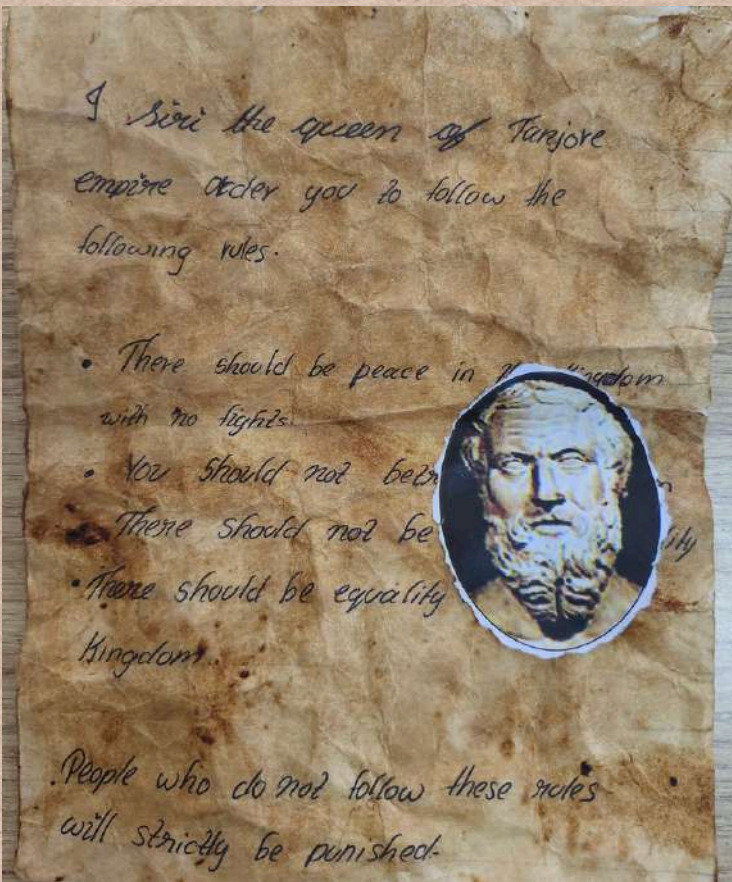 I Siri the queen of Tanjore
empire order you to follow the
following rules.
• There should be peace in kingdom
with no fights.
• You should not
There should not be
• There should be equality
Kingdom.
People who do not follow these rules
will strictly be punished.